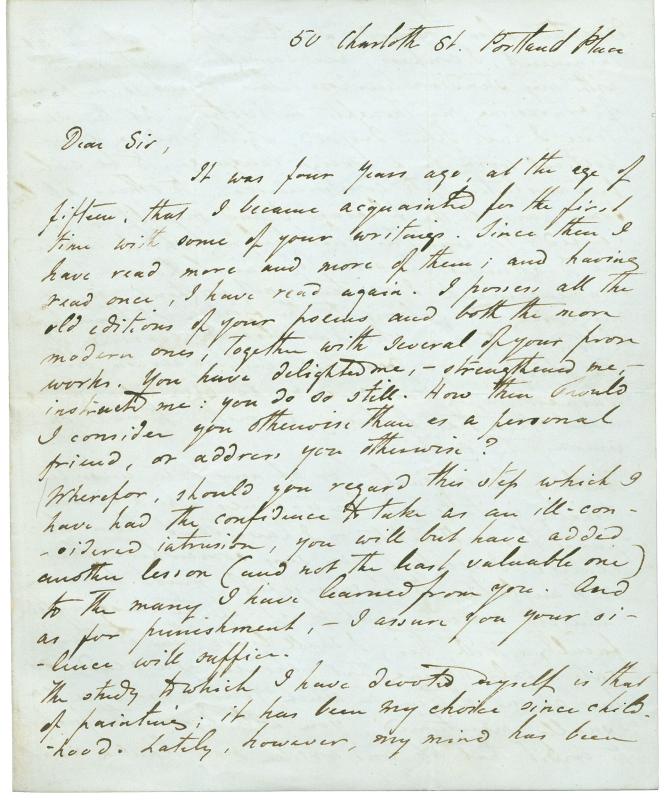 50 Charlotte St. Portland Place
Dear Sir,
It was four years ago, at the age of
fifteen, that I became acquainted for the first
time with some of your writings. Since then I
have read more and more of them; and having
read once, I have read again. I possess all the
old editions of your poems and both the more
modern ones, together with several of your prose
works. You have delighted me, – strengthened me, –
instructed me: you do so still. How then should
I consider you otherwise than as a personal
friend, or address you otherwise?
Wherefor, should you regard this step which I
have had the confidence to take as an ill-con-
-sidered intrusion, you will but have added
another lesson (and not the least valuable one)
to the many I have learned from you. And
as for punishment, – I assure you your si-
-lence will suffice.
The study to which I have devoted myself is that
of painting; it has been my choice since child-
-hood. Lately, however, my mind has been